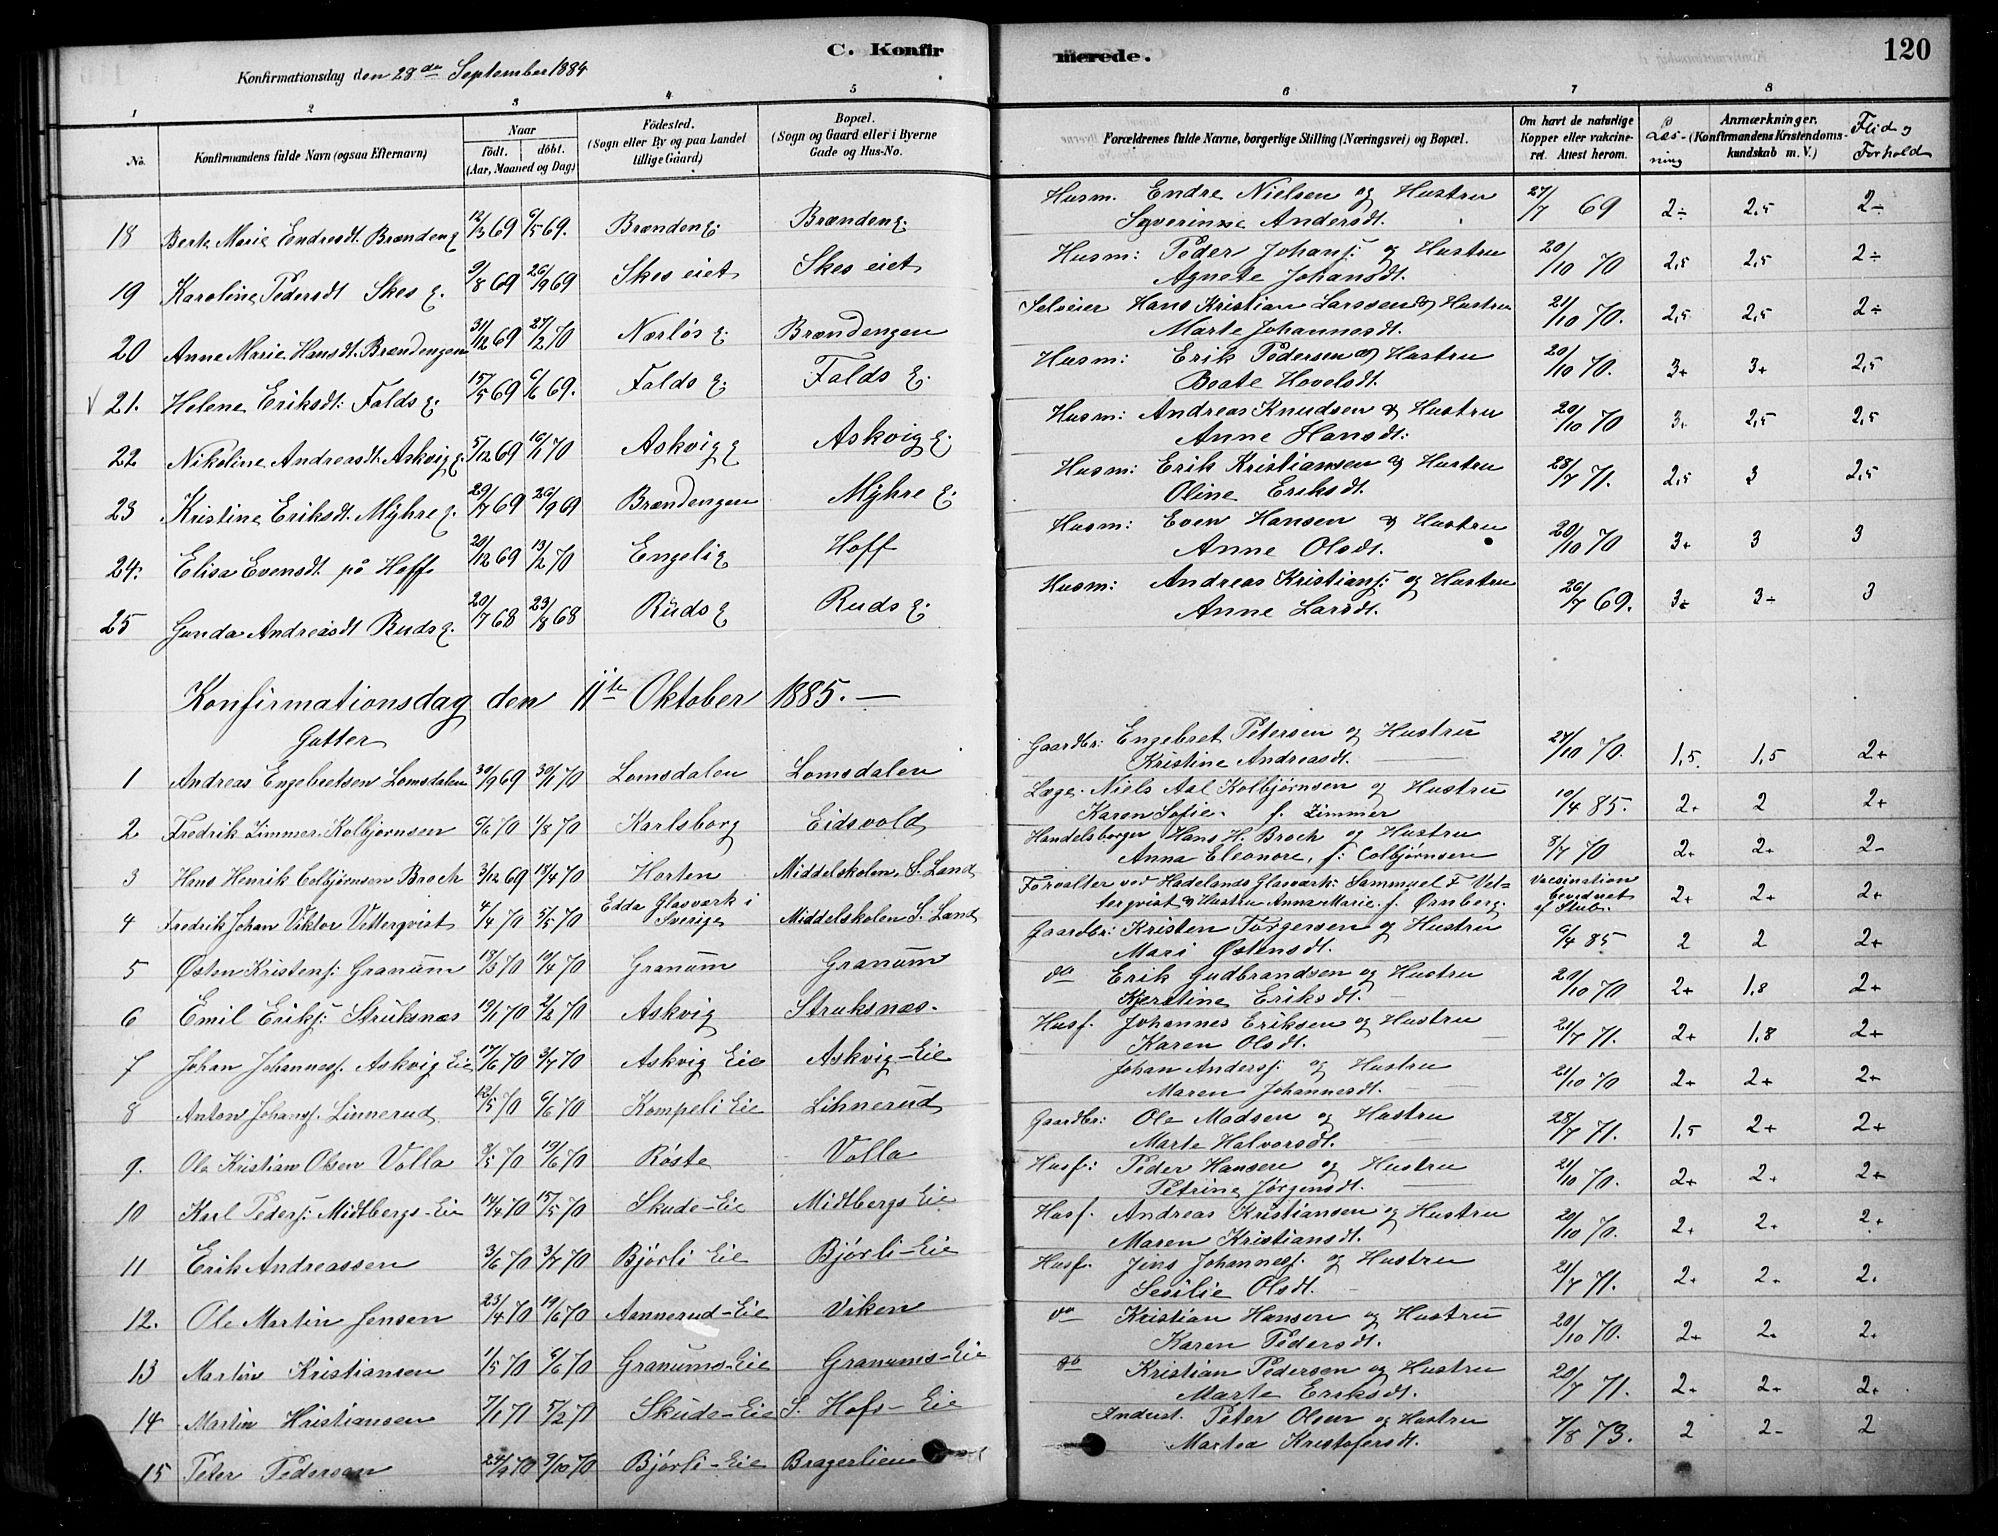 C. Konfirmerede. 120
Konfirmationsdag den 28de September 1884
1 2 3 4 5 6 7 8
No. Konfirmandens fulde Navn (ogsaa Efternavn) Naar født. døbt. (Aar, Maaned og Dag) Fødested. (Sogn eller By og paa Landet tillige Gaard) Bopæl. (Sogn og Gaard eller i Byerne Gade og Hus-No. Forældrenes fulde Navne, borgerlige Stilling (Næringsvei) og Bopæl. Om havt de naturlige Kopper eller vakcineret. Attest herom. Læsning Anmærkninger. (Konfirmandens Kristendomskundskab m. V.) Flid og Forhold
18 Berte Marie Endresdt. Brænden E. 12/3 69 6/5 69. Brænden E. Brænden E. Husm. Endre Nielsen og Hustru Syverine Andersdt. 27/7 69 2÷ 2,5 2÷
19 Karoline Pedersdt Skes E. 9/8 69 26/9 69 Skes eiet Skes eiet Husm: Peder Johans: og Hustru Agnete Johansdt. 20/10 70 2,5 2,5 2÷
20 Anne Marie Hansdt. Brændengen 31/12 69 27/2 70 Nerløs E. Brændengen Selveier Hans Kristian Larssen & Hustru Marte Johannesdt. 21/10 70. 2,5 2,5 2÷
21. Helene Eriksdt: Falds E. 15/5 69 6/6 69. Falds E. Falds E. Husm: Erik Pedersen & Hustru Beate Hovelsdt. 20/10 70. 3+ 3+ 2,5
22 Nikoline Andreasdt. Askvig E. 5/12 69 16/1 70 Askvig E Askvig E. Husm: Andreas Knudsen & Hustru Anne Hansdt: 20/10 70 3+ 2,5 2,5
23 Kristine Eriksdt. Myhre E. 29/7 69 26/9 69 Brændengen Myhre E. Husm: Erik Kristiansen & Hustru Oline Eriksdt. 28/7 71. 2,5 3 2,5
24: Elisa Evensdt på Hoff 20/12 69 13/2 70 Engeli E Hoff Husm: Even Hansen & Hustru Anne Olsdt. 20/10 70 3+ 3 3
25 Gunda Andreasdt Ruds E. 20/7 68 23/8 68 Ruds E Ruds E. Husm: Andreas Kristians: og Hustru Anne Larsdt. 26/7 69. 3÷ 3÷ 3
Konfirmationsdag den 11te Oktober 1885.—
Gutter
1 Andreas Engebretsen Lomsdalen 30/9 69 30/1 70 Lomsdalen Lomsdalen Gaardbr: Engebret Petersen og Hustru Kristine Andreasdt. 27/10 70. 1,5. 1,5 2+
2. Fredrik Zimmer Kolbjørnsen 9/6 70 1/8 70 Karlsborg Eidsvold Læge. Niels Aal Kolbjørnsen og Hustru Karen Sofie. f. Zimmer 10/4 85. 2+ 2 2+
3 Hans Henrik Colbjørnsen Broch 3/12 69 18/4 70 Horten Middelskolen, S. Land Handelsborger Hans H. Broch og Hustru Anna Eleonore, f: Colbjørnsen 8/7 70 2+ 2+ 2-
4 Fredrik Johan Viktor Vetterqvist 4/4 70 5/5 70 Edda Glasværk i Sverige Middelskolen S. Land Forvalter ved Hadelands Glasværk: Sammuel F. Vetterqvist & Hustru Anna Marie f. Ørnberg. Vaccination bevidnet af Stub. 2+ 2+ 2+
5 Østen Kristens: Granum 18/3 70 10/4 70 Granum Granum Gaardbr: Kristen Torgersen og Hustru Mari Østensdt. 6/4 85 2 2 2+
6 Emil Eriks: Struksnæs 19/1 70 2/2 70 Askvig Struksnæs. do Erik Gudbrandsen og Hustru Kjerstine Eriksdt. 20/10 70 2+ 1,8 2+
7 Johan Johannes. Askvig Eie 17/6 70 3/7 70 Askvig Eie Askvig-Eie Husf. Johannes Eriksen og Hustru Karen Olsdt. 21/7 71. 2+ 1,8 2+
8 Anton Johans. Linnerud 12/5 70 6/6 70 Kompeli Eie Linnerud Johan Anders. og Hustru Maren Johannesdt. 21/10 70 2+ 2+ 2+
9. Ole Kristian Olsen Volla 9/5 70 19/6 70 Røste Volla Gaardbr: Ole Madsen og Hustru Marte Halvorsdt. 28/7 71. 1,5 2+ 2+
10 Karl Peders: Midtbergs-Eie 14/4 70 15/5 70 Skude-Eie Midtbergs Eie Husf: Peder Hansen og Hustru Petrine Jørgensdt. 21/10 70. 2+ 2+ 2+
11 Erik Andreassen 3/6 70 3/7 70 Bjørli Eie Bjørli-Eie Husf. Andreas Kristiansen og Hustru Maren Kristiansdt. 20/10 70. 2+ 2- 2+
12. Ole Martin Jensen 23/4 70 19/6 70 Annerud-Eie Viken Husf. Jens Johannes. og Hustru Sesilie Olsdt. 21/7 71. 2+ 2- 2.
13 Martin Kristiansen 1/5 70 6/6 70 Granums-Eie Granums-Eie do Kristian Hansen og Hustru Karen Pedersdt. 20/10 70. 2+ 2- 2.
14 Martin Kristiansen 7/1 71 5/2 71 Skude-Eie S. Hofs-Eie do Kristian Pedersen og Hustru Marte Eriksdt. 20/7 71. 2+ 2+ 2+
15 Peter Pedersen 24/9 70 9/10 70 Bjørli-Eie Bragerlien Inderst. Peter Olsen og Hustru Martea Kristofersdt. 7/8 73. 2 2- 2